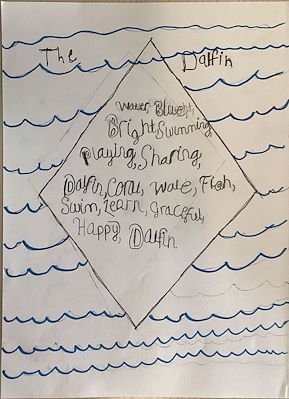 The Dalfin
Water Blueish,
Bright Swimming
Playing, Sharing,
Dalfin, Coral, Wate, Fish,
Swim, Learn, Graceful,
Happy, Dalfin